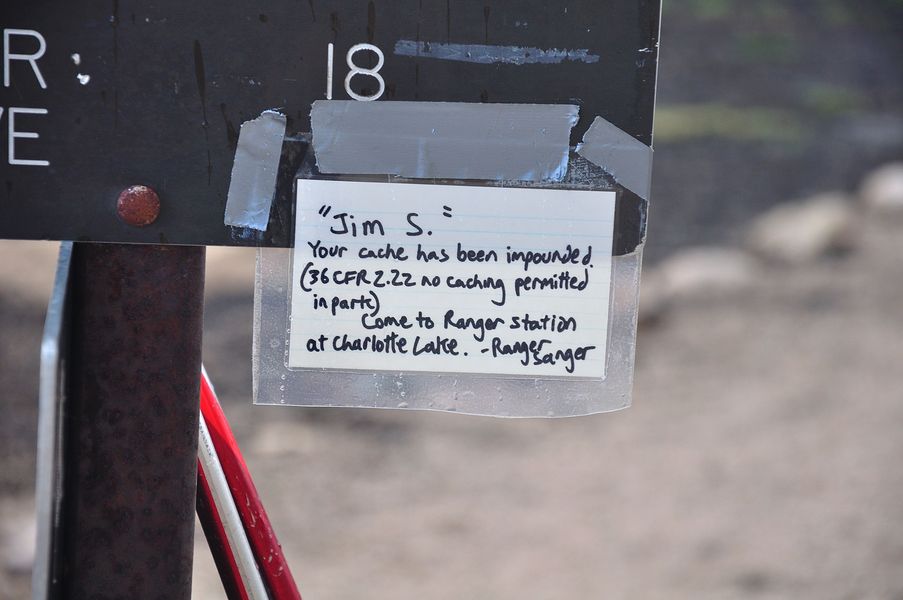 R 18
VE
"Jim S."
Your cache has been impounded.
(36 CFR 2.22 no caching permitted
in park)
Come to Ranger station
at Charlotte Lake. -Ranger
Sanger